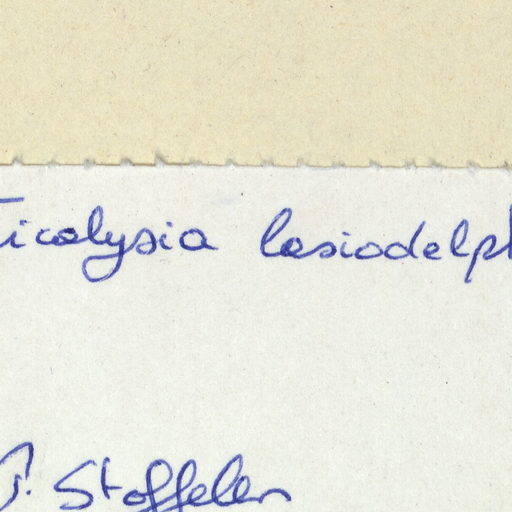 Tricalysia lasiodelph
P. Stoffelen